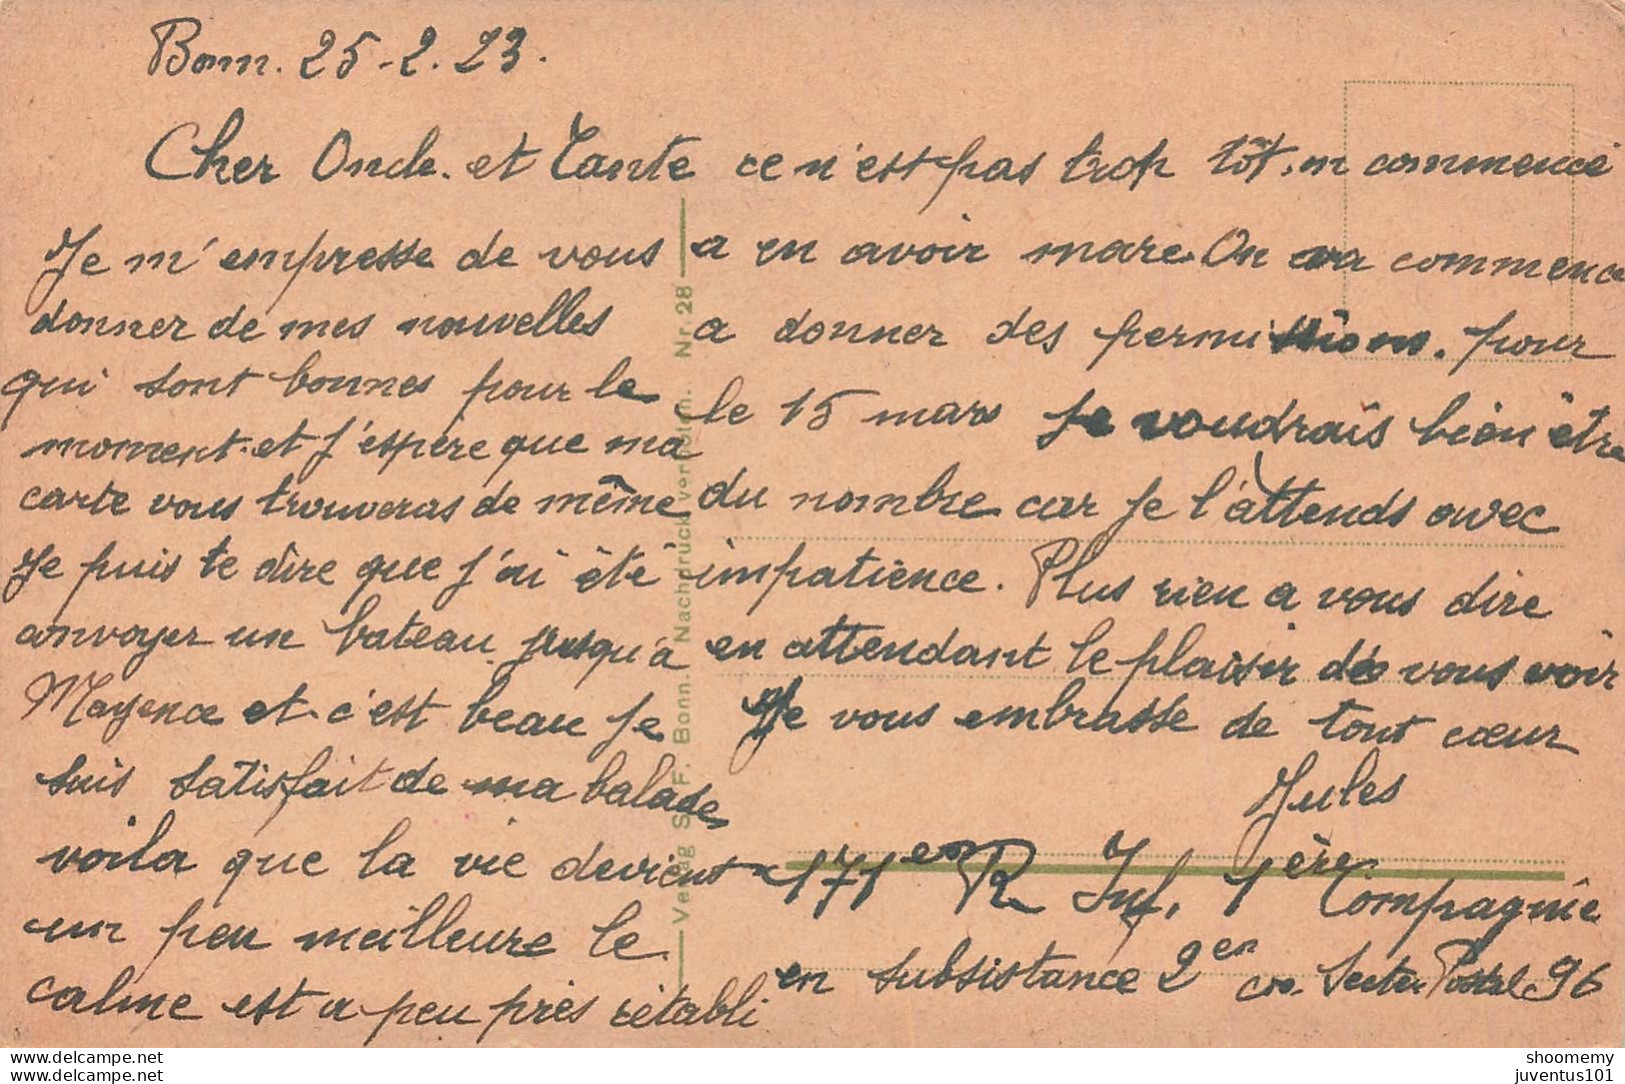 Bonn. 25-2. 23.
Cher Oncle. et Tante
Je m'empresse de vous
donner de mes nouvelles
qui sont bonnes pour le
moment. et J'espère que ma
carte vous trouveras de même
Je puis te dire que J'ai été
convoyer un bateau Jusqu'à
Mayence et c'est beau Je
suis satisfait de ma balade
voila que la vie devient
un peu meilleure le
calme est a peu près rétabli
ce n'est pas trop tôt. on commence
a en avoir mare. On va commence
a donner des permissions. pour
le 15 mars Je voudrais bien être
du nombre car Je l'attends avec
impatience. Plus rien a vous dire
en attendant le plaisir de vous voir
Je vous embrasse de tout cœur
Jules
171em R Inf. 1ère Compagnie
en subsistance 2em Cie. Secteur Postal 96
Verlag S. F. Bonn. Nachdruck verboten. Nr. 28
www.delcampe.net
shoomemy
juventus101